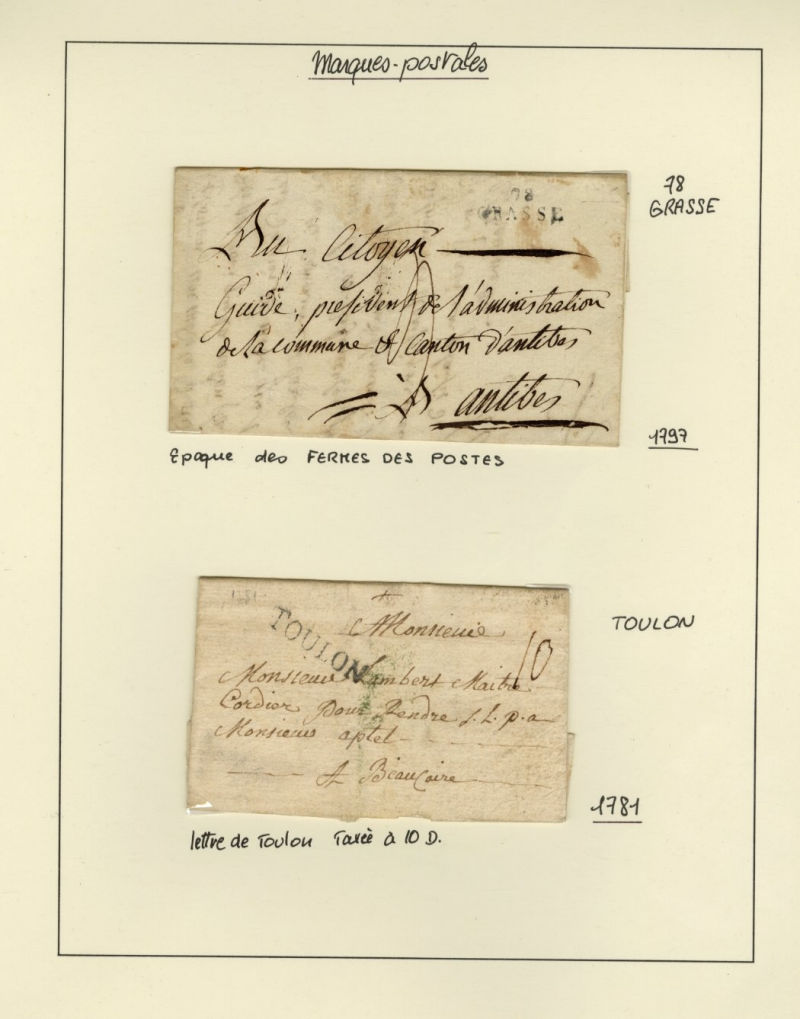 Marques-postales
78
GRASSE
78
GRASSE
Au Citoyen
Guide, president de l'administration
de la commune & Canton d'antibes
à antibes
1797
Epoque des FERMES DES POSTES
TOULON
TOULON
Monsieur
10
Monsieur Lambert Maitre
Cordier pour Rendre s. l. p. a
Monsieur aptel
A Beaucaire
1781
lettre de Toulon Taxée à 10 D.